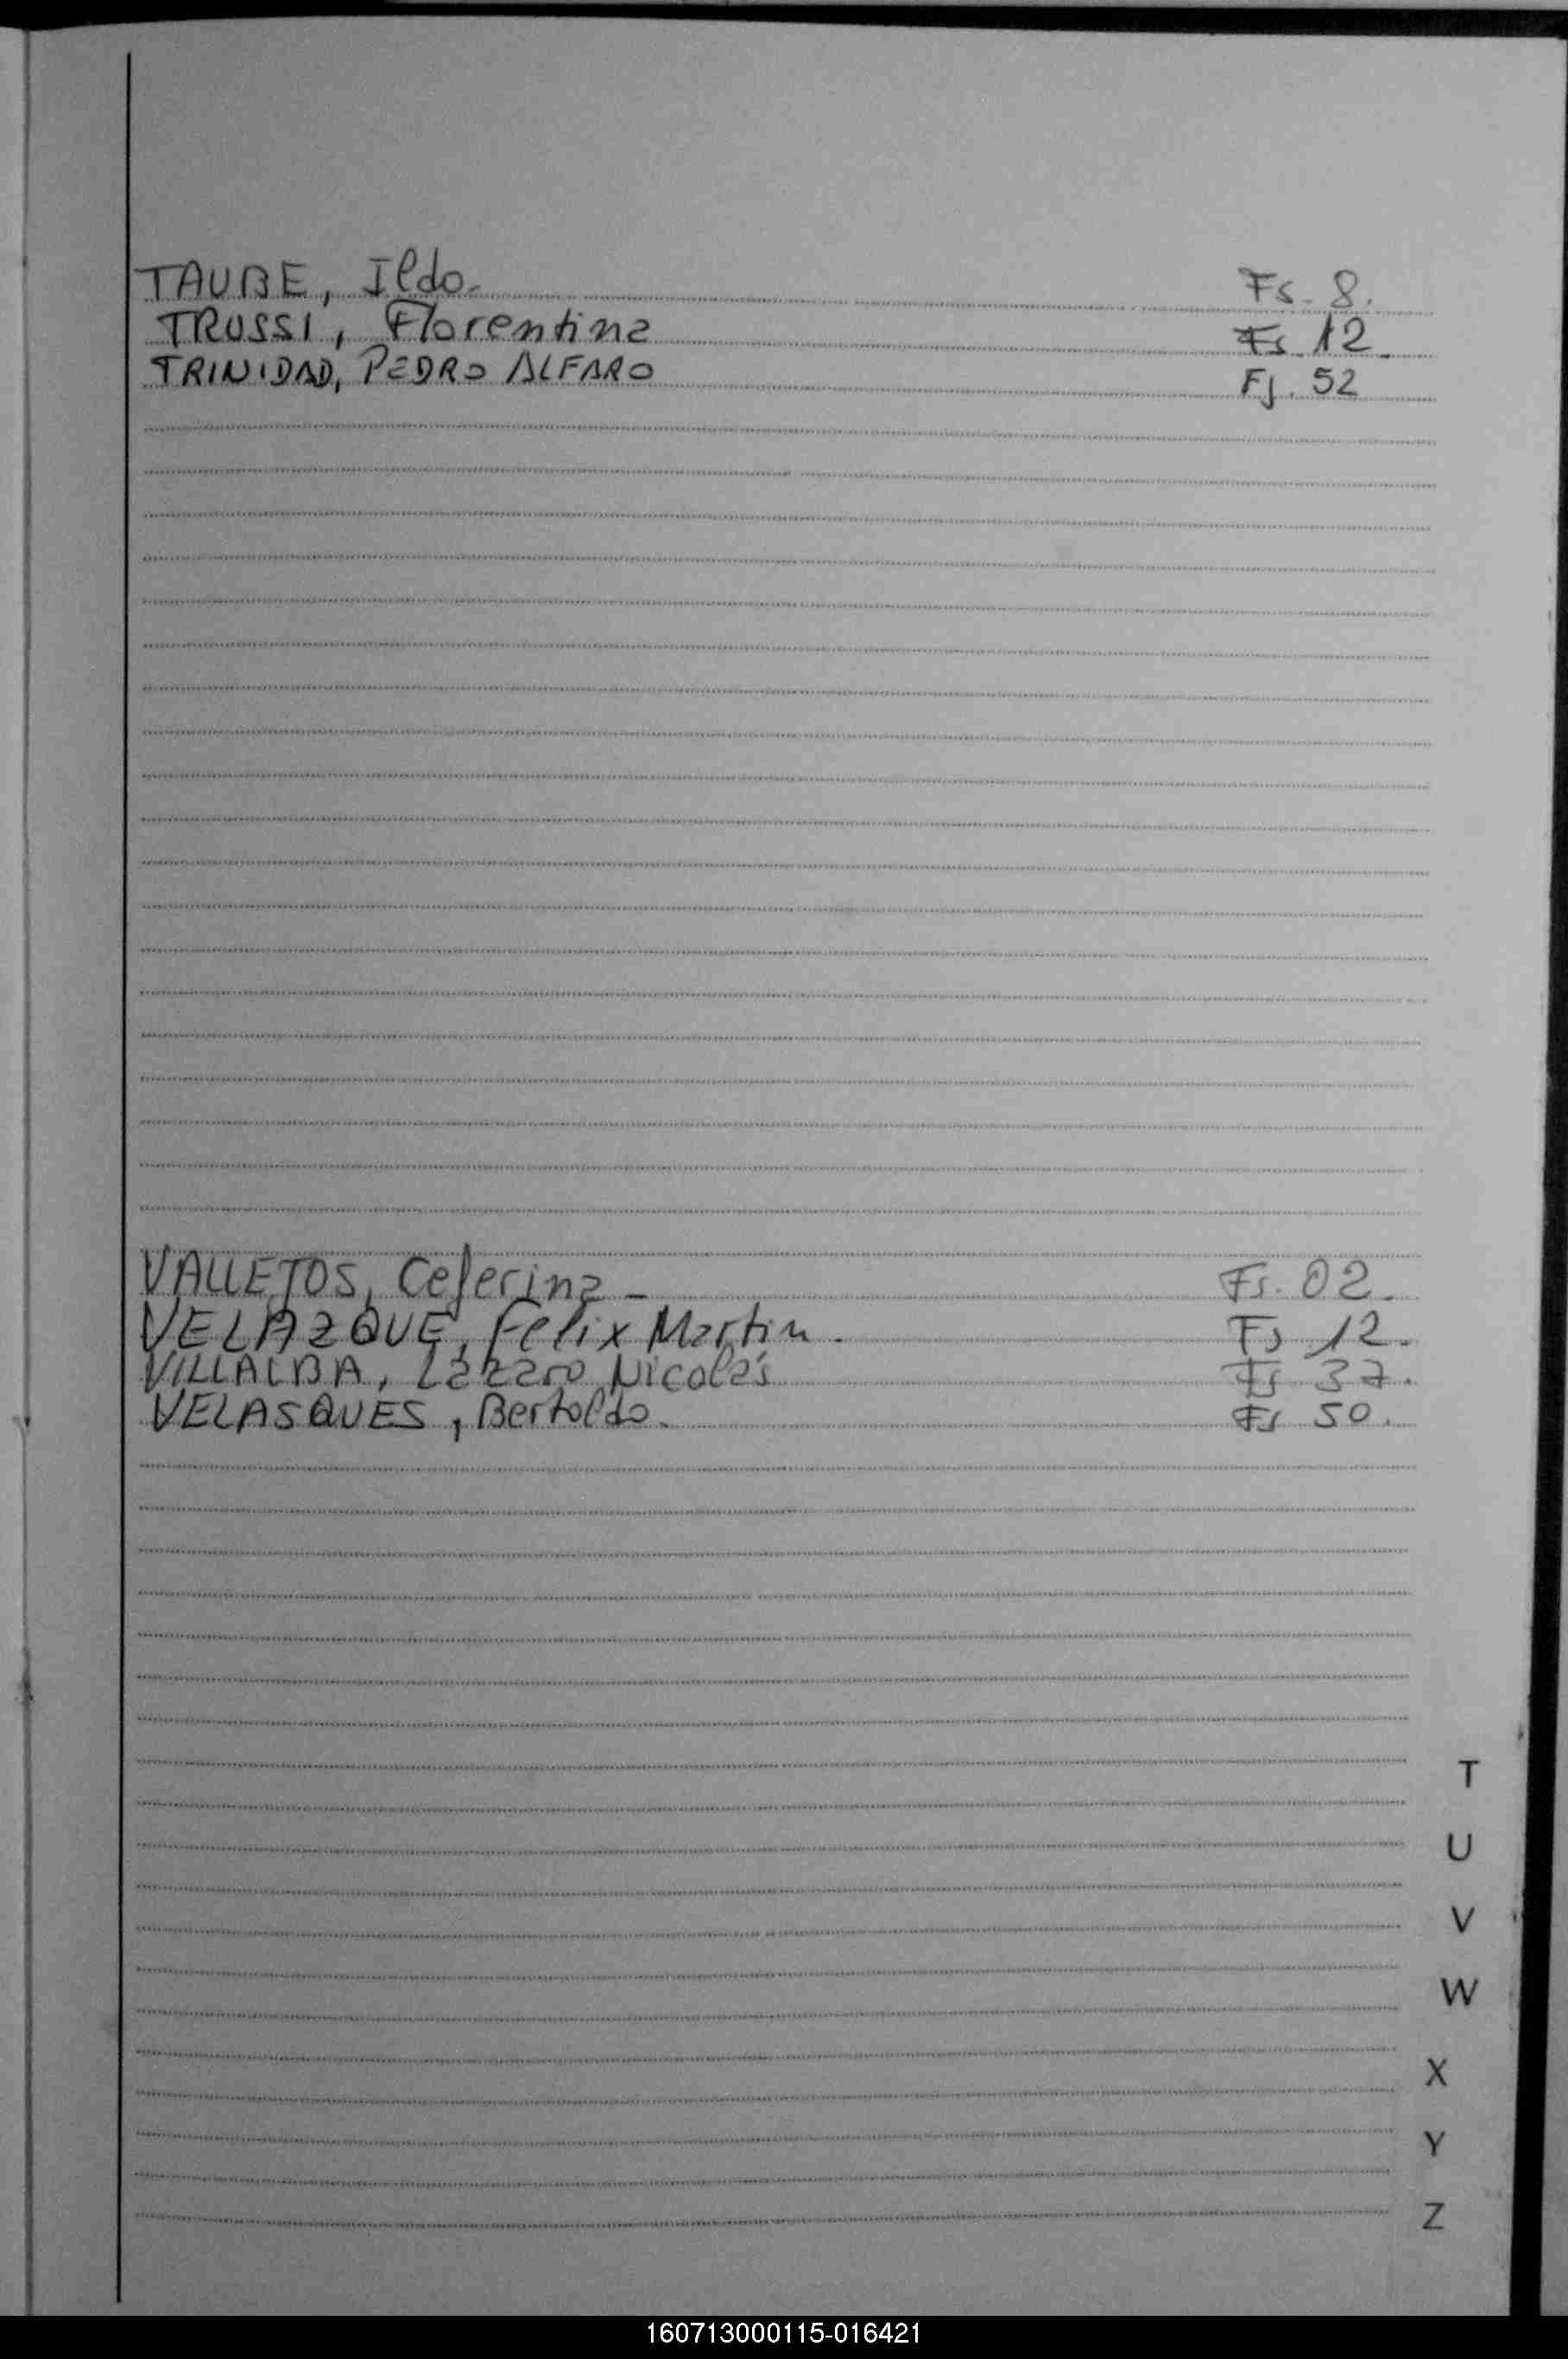 TAUBE, Ildo. Fs. 8.
TRUSSI, Florentina Fs 12.
TRINIDAD, PEDRO ALFARO Fj. 52
VALLEJOS, Ceferina - Fs. 02.
VELAZQUE, Felix Martin. Fs 12.
VILLALBA, Lázaro Nicolás Fs 37.
VELASQUES, Bertoldo. Fs 50.
T
U
V
W
X
Y
Z
160713000115-016421